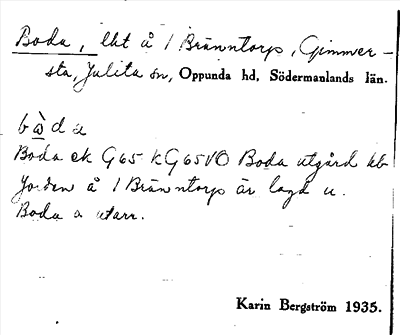 Boda, lht å 1 Bränntorp, Gimmer-
sta, Julita sn, Oppunda hd, Södermanlands län.
bòda
Boda ek G65 kG65VO Boda utgård hb
Jorden å 1 Bränntorp är lagd u.
Boda a utarr.
Karin Bergström 1935.